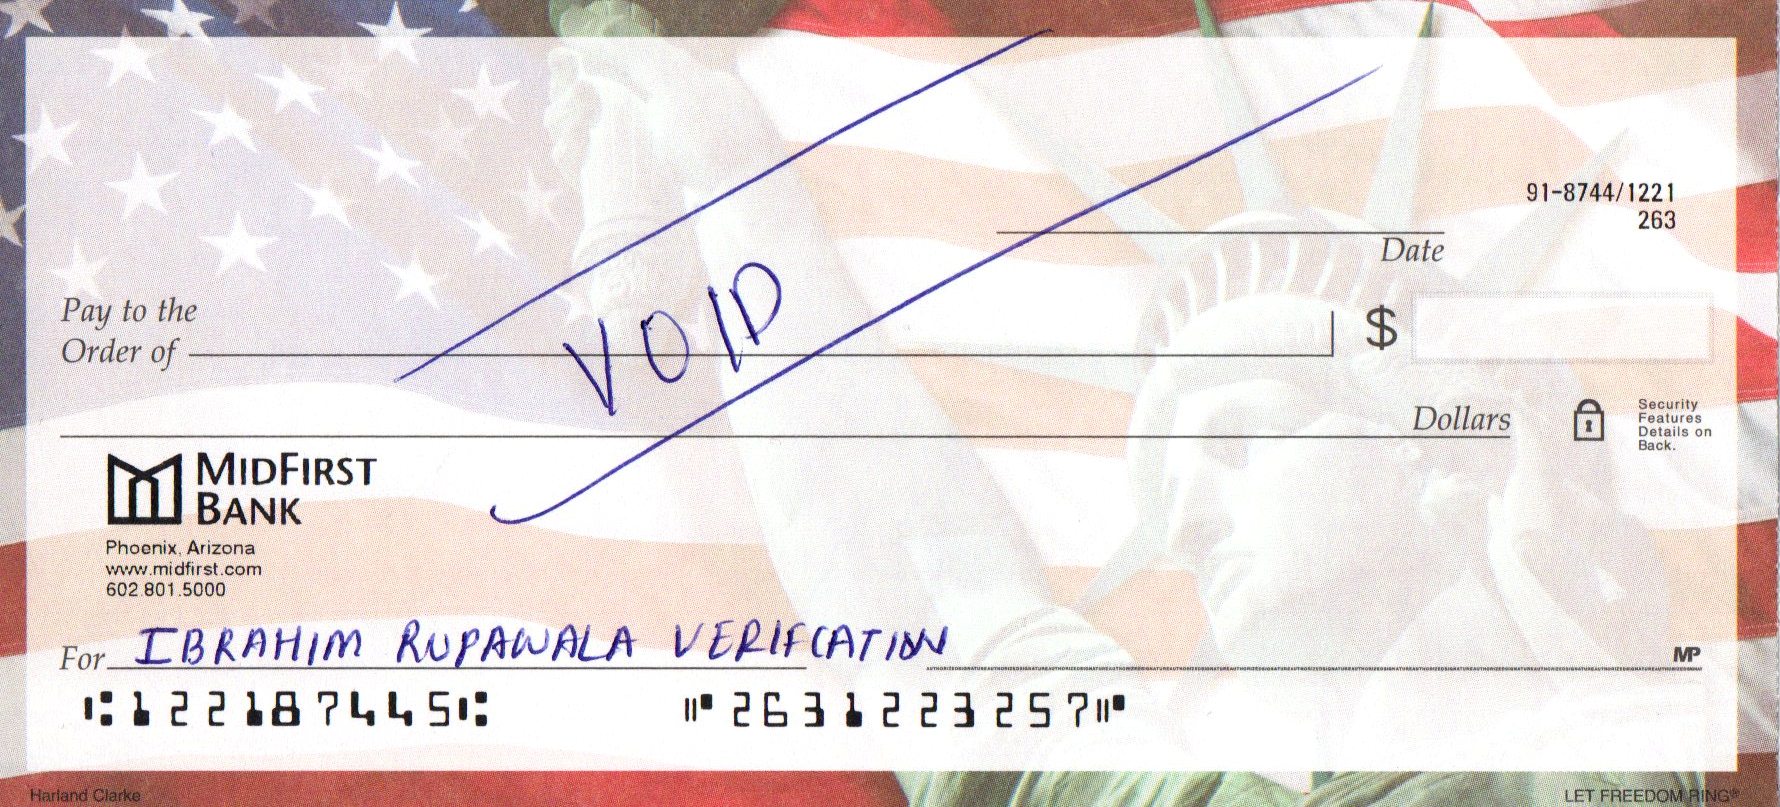 91-8744/1221
263
Date
Pay to the
Order of
$
VOID
Dollars
Security
Features
Details on
Back.
MIDFIRST
BANK
Phoenix, Arizona
www.midfirst.com
602.801.5000
For IBRAHIM RUPAWALA VERIFCATION
MP
⑆122187445⑆ ⑈2631223257⑈
Harland Clarke
LET FREEDOM RING®